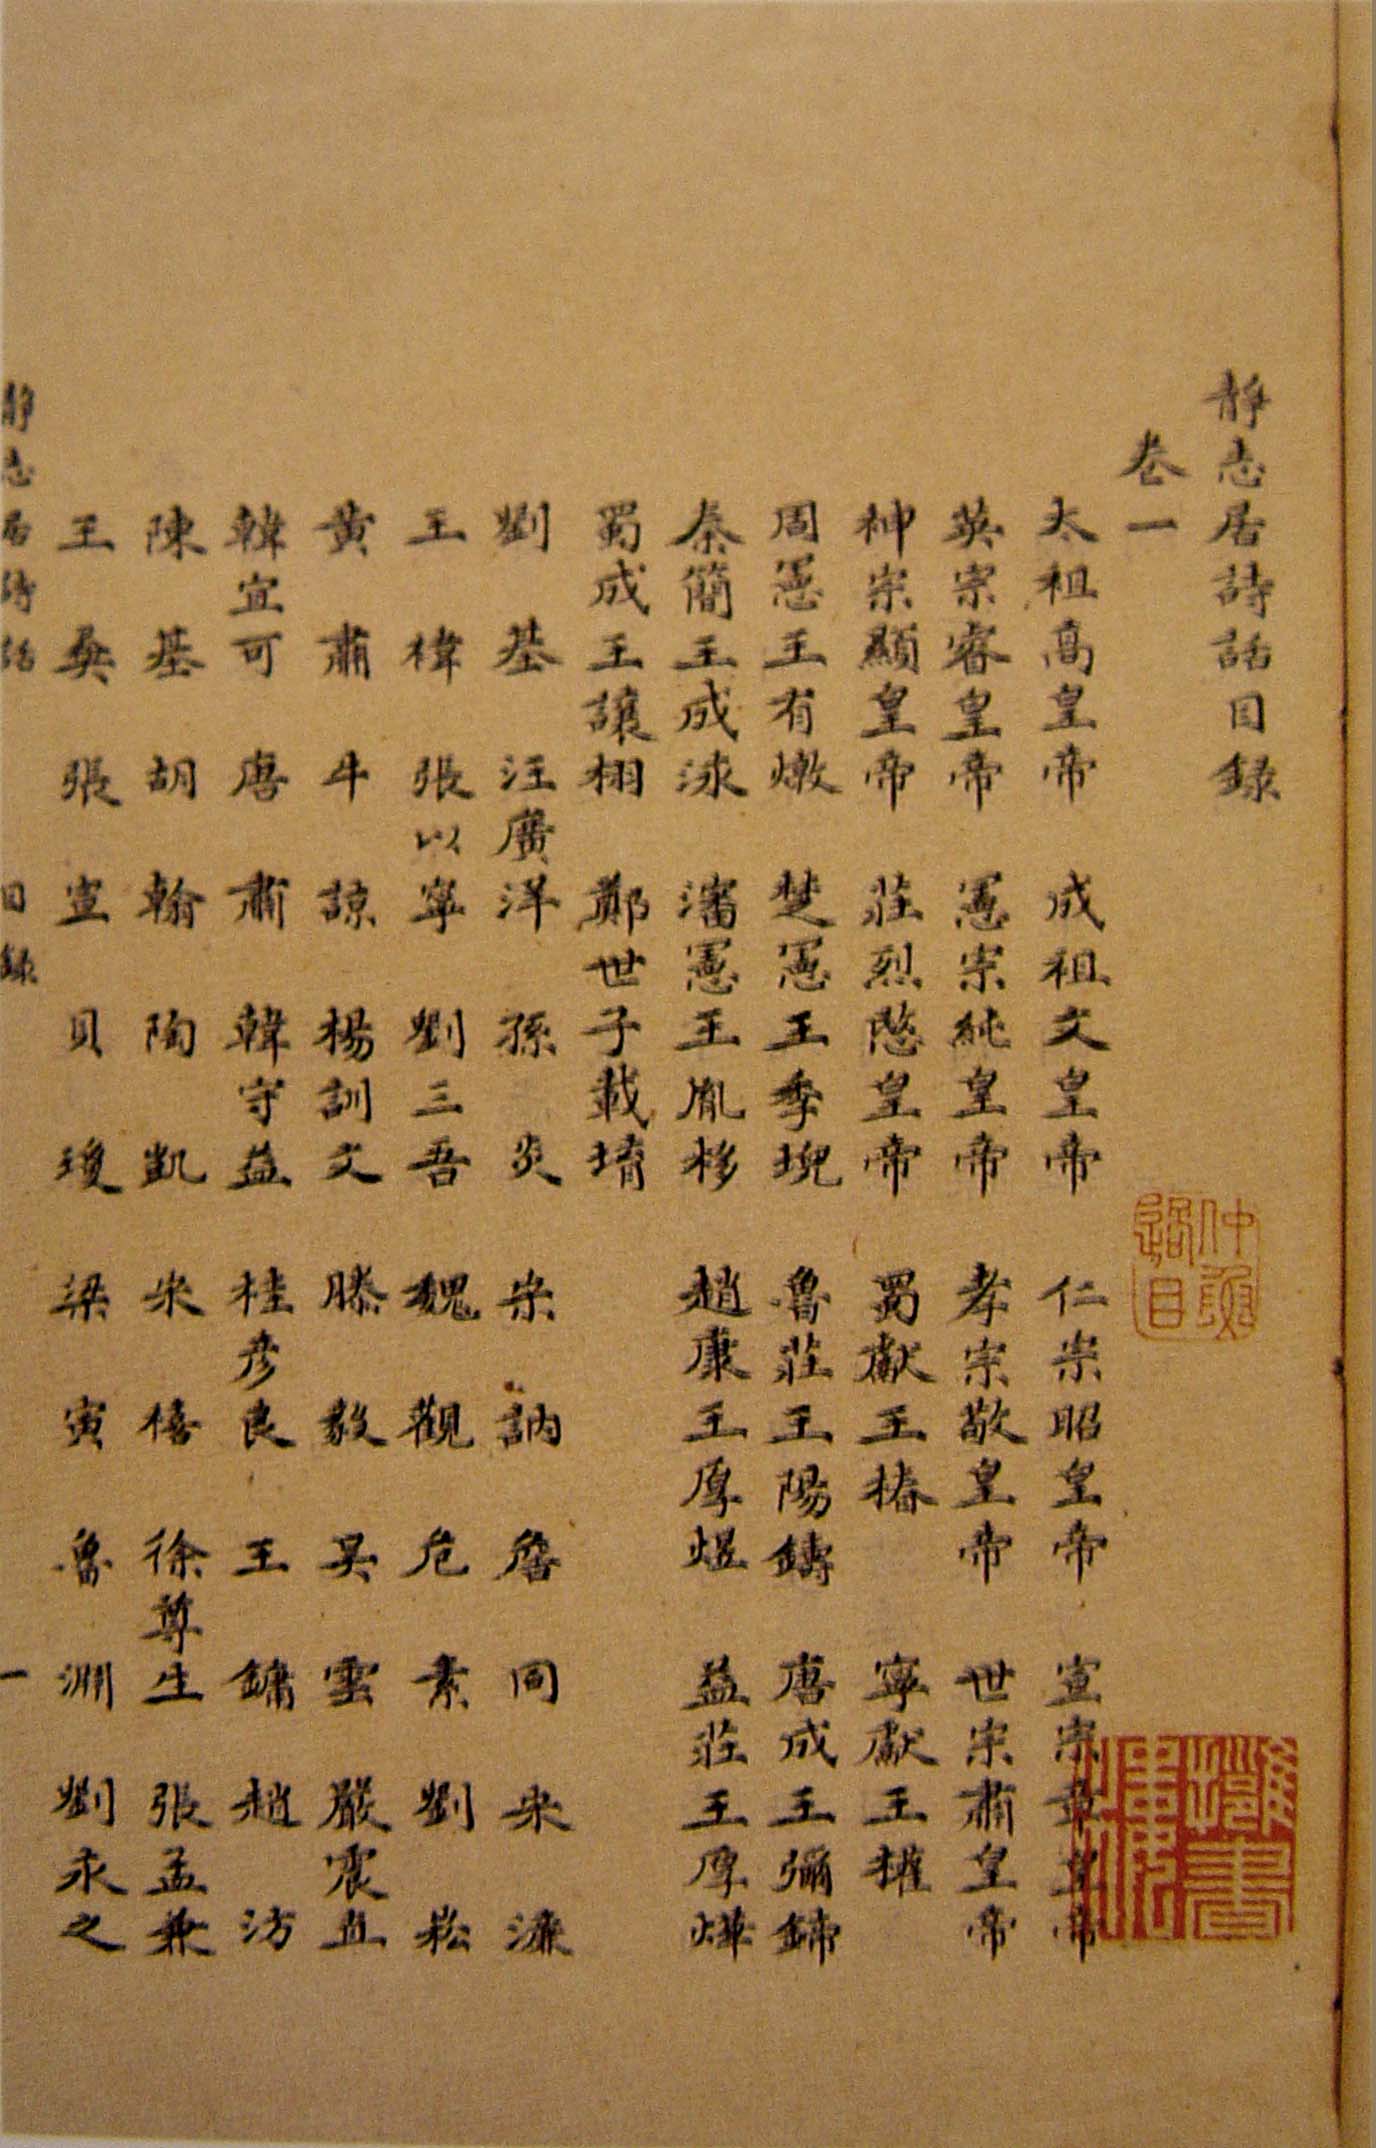 靜志居詩話目録
卷一
太祖高皇帝 成祖文皇帝 仁宗昭皇帝 宣宗章皇帝
英宗睿皇帝 憲宗純皇帝 孝宗敬皇帝 世宗肅皇帝
神宗顯皇帝 莊烈愍皇帝 蜀獻王椿 寧獻王權
周憲王有燉 楚憲王季堄 魯莊王陽鑄 唐成王彌鍗
秦簡王成泳 瀋憲王胤栘 趙康王厚煜 益莊王厚燁
蜀成王讓栩 鄭世子載堉
劉基 汪廣洋 孫炎 宋訥 詹同 宋濂
王禕 張以寧 劉三吾 魏觀 危素 劉崧
黃肅 牛諒 楊訓文 滕毅 吴雲 嚴震直
韓宜可 唐肅 韓守益 桂彦良 王鏞 趙汸
陳基 胡翰 陶凱 宋禧 徐尊生 張孟兼
王彝 張宣 貝瓊 梁寅 魯淵 劉永之
靜志居詩話 目録 一